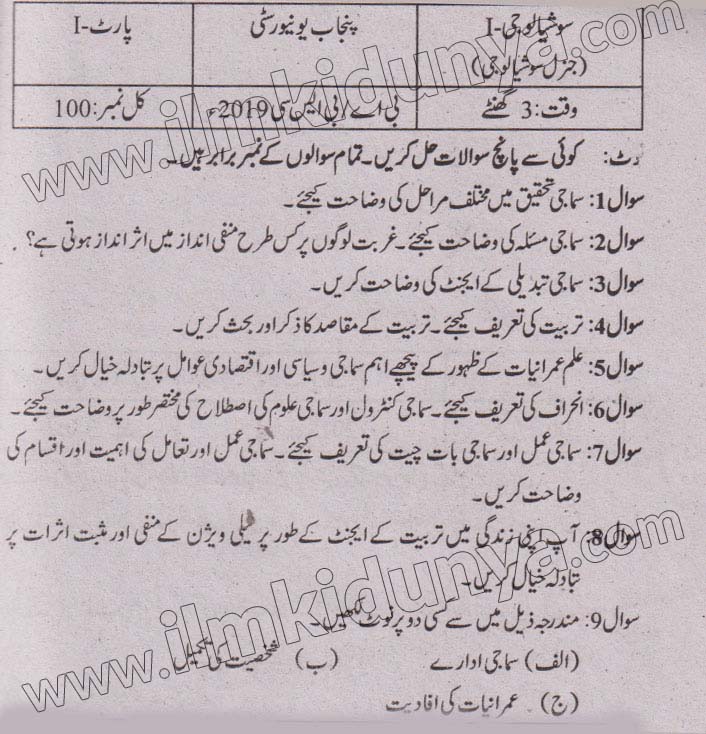 سوشیالوجی-I پنجاب یونیورسٹی پارٹ-I
(جنرل سوشیالوجی)
وقت: 3 گھنٹے بی اے/بی ایس سی 2019ء کل نمبر: 100
وٹ: کوئی سے پانچ سوالات حل کریں۔ تمام سوالوں کے نمبر برابر ہیں۔
سوال 1: سماجی تحقیق میں مختلف مراحل کی وضاحت کیجئے۔
سوال 2: سماجی مسئلہ کی وضاحت کیجئے۔ غربت لوگوں پر کس طرح منفی انداز میں اثر انداز ہوتی ہے؟
سوال 3: سماجی تبدیلی کے ایجنٹ کی وضاحت کریں۔
سوال 4: تربیت کی تعریف کیجئے۔ تربیت کے مقاصد کا ذکر اور بحث کریں۔
سوال 5: علم عمرانیات کے ظہور کے پیچھے اہم سماجی و سیاسی اور اقتصادی عوامل پر تبادلہ خیال کریں۔
سوال 6: انحراف کی تعریف کیجئے۔ سماجی کنٹرول اور سماجی علوم کی اصطلاح کی مختصر طور پر وضاحت کیجئے۔
سوال 7: سماجی عمل اور سماجی بات چیت کی تعریف کیجئے۔ سماجی عمل اور تعامل کی اہمیت اور اقسام کی
وضاحت کریں۔
سوال 8: آپ اپنی زندگی میں تربیت کے ایجنٹ کے طور پر ٹیلی ویژن کے منفی اور مثبت اثرات پر
تبادلہ خیال کریں۔
سوال 9: مندرجہ ذیل میں سے کسی دو پر نوٹ لکھیں۔
(الف) سماجی ادارے (ب) شخصیت کی تکمیل
(ج) عمرانیات کی افادیت
www.ilmkidunya.com
www.ilmkidunya.com